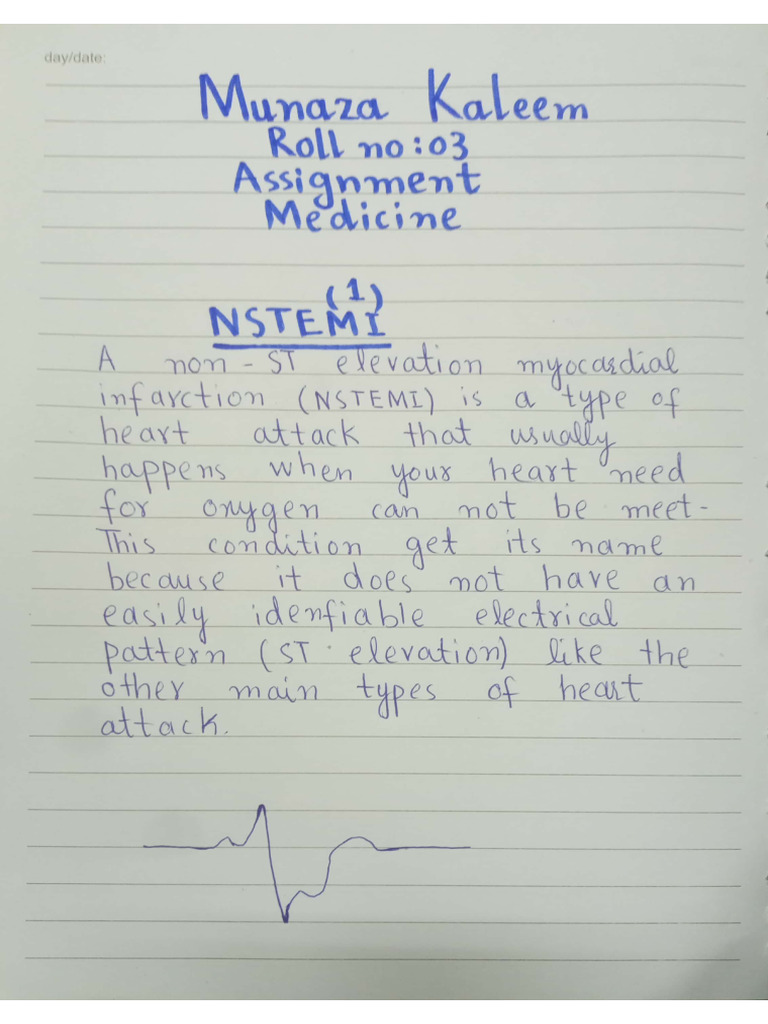 day/date:
Munaza Kaleem
Roll no:03
Assignment
Medicine
(1)
NSTEMI
A non-ST elevation myocardial
infarction (NSTEMI) is a type of
heart attack that usually
happens when your heart need
for oxygen can not be meet-
This condition get its name
because it does not have an
easily idenfiable electrical
pattern (ST elevation) like the
other main types of heart
attack.